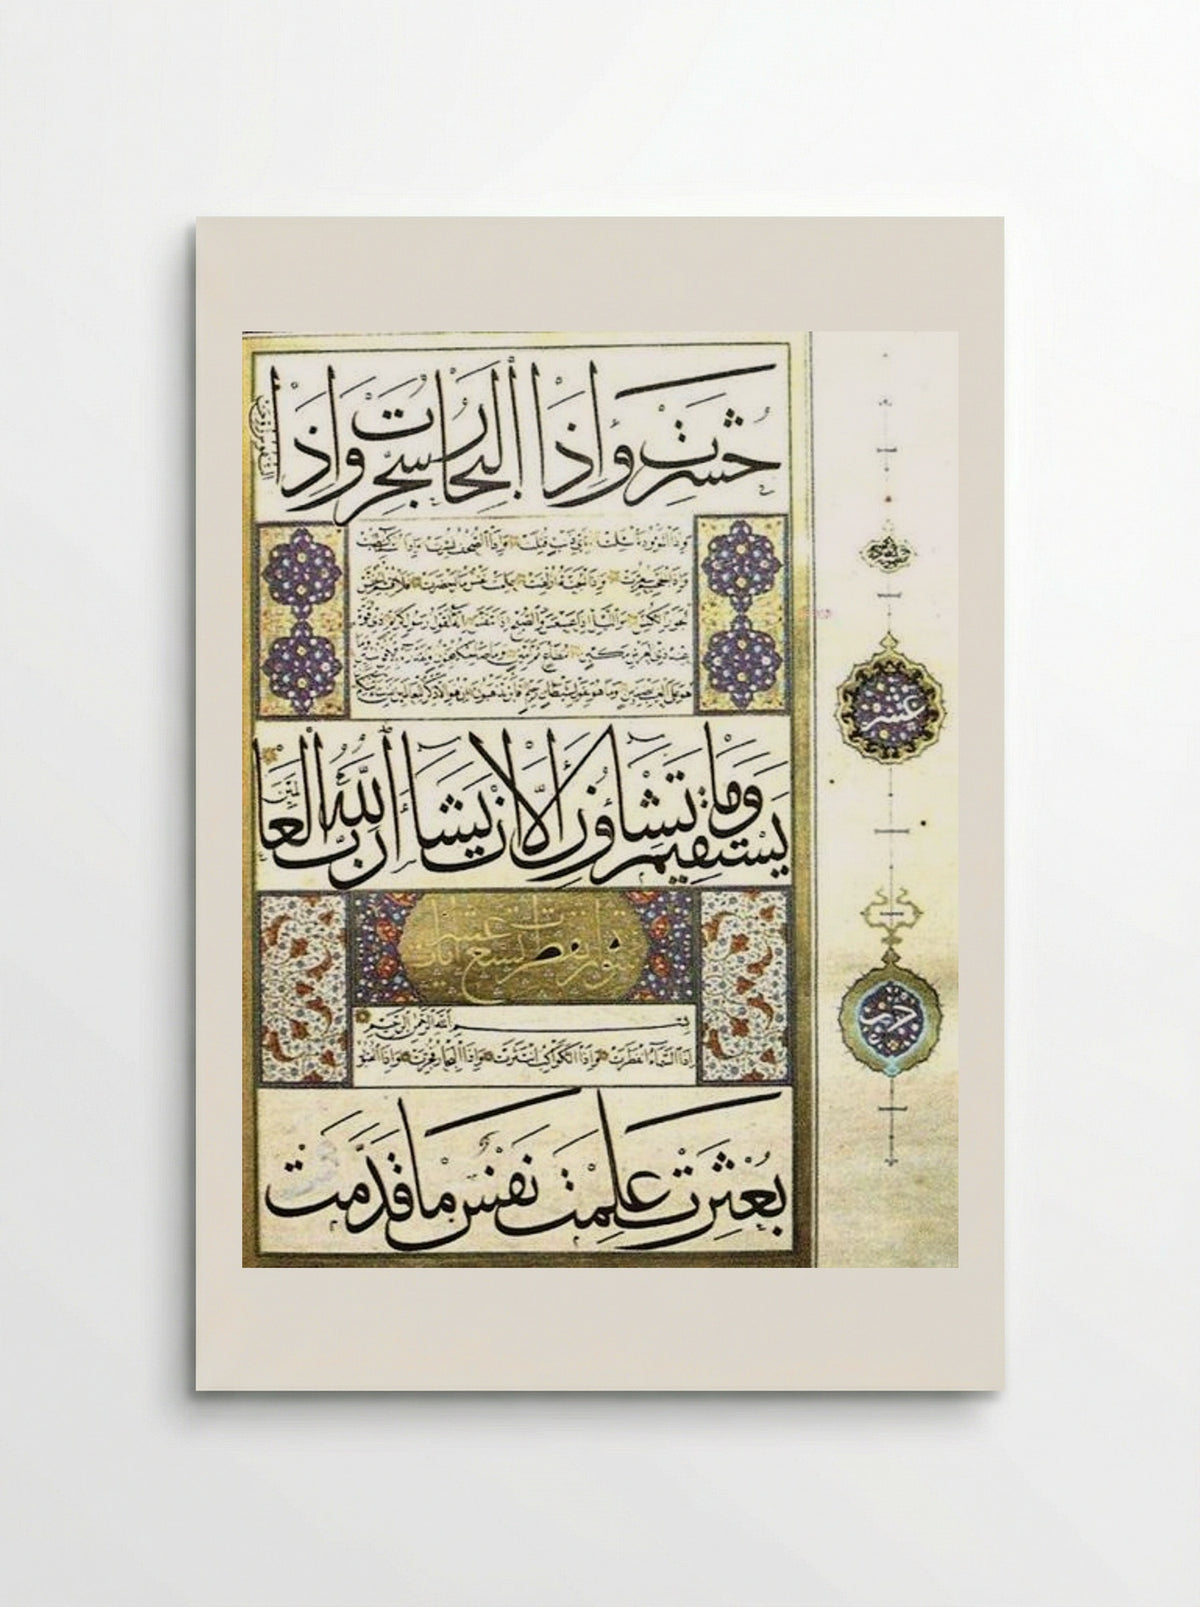 حُشِرَت وَإِذَا البِحَارُ سُجِّرَت وَإِذَا
النفوس زوجت
وَإِذَا الموءودة سئلت بأي ذنب قتلت وَإِذَا الصحف نشرت وَإِذَا السماء كشطت
وَإِذَا الجحيم سعرت وَإِذَا الجنة أزلفت علمت نفس ما أحضرت فلا أقسم بالخنس
الجوار الكنس والليل إذا عسعس والصبح إذا تنفس إنه لقول رسول كريم ذي قوة
عند ذي العرش مكين مطاع ثم أمين وما صاحبكم بمجنون ولقد رآه بالأفق المبين
وما هو على الغيب بضنين وما هو بقول شيطان رجيم فأين تذهبون إن هو إلا ذكر للعالمين لمن شاء منكم أن
يَستَقِيمَ وَمَا تَشَاؤُنَ إِلَّا أَن يَشَاءَ اللَّهُ رَبُّ العَا
لمين
سورة انفطرت تسع عشرة آيات
بسم الله الرحمن الرحيم
إِذَا السَّمَاءُ انفَطَرَت وَإِذَا الكَوَاكِبُ انتَثَرَت وَإِذَا البِحَارُ فُجِّرَت وَإِذَا القُبُورُ
بُعثِرَت عَلِمَت نَفسٌ مَا قَدَّمَت
عشر
حزب